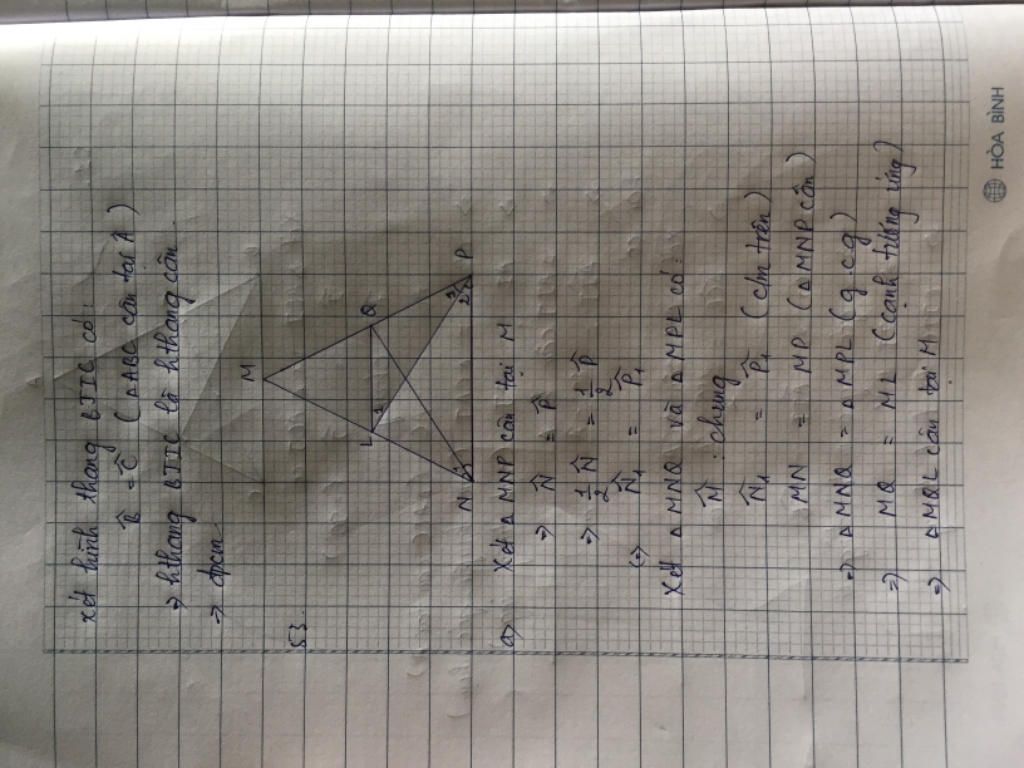 xét hình thang BJIC có:
B̂ = Ĉ (△ABC cân tại A)
⇒ hthang BJIC là hthang cân
⇒ đpcm
53.
M
L 1 Q
N 1 1 2 P
a> Xét △MNP cân tại M
⇒ N̂ = P̂
⇒ 1/2 N̂ = 1/2 P̂
(⇒) N̂₁ = P̂₁
Xét △MNQ và △MPL có:
M̂ : chung
N̂₁ = P̂₁ (c/m trên)
MN = MP (△MNP cân)
⇒ △MNQ = △MPL (g.c.g)
⇒ MQ = ML (cạnh tương ứng)
⇒ △MQL cân tại M
HÒA BÌNH